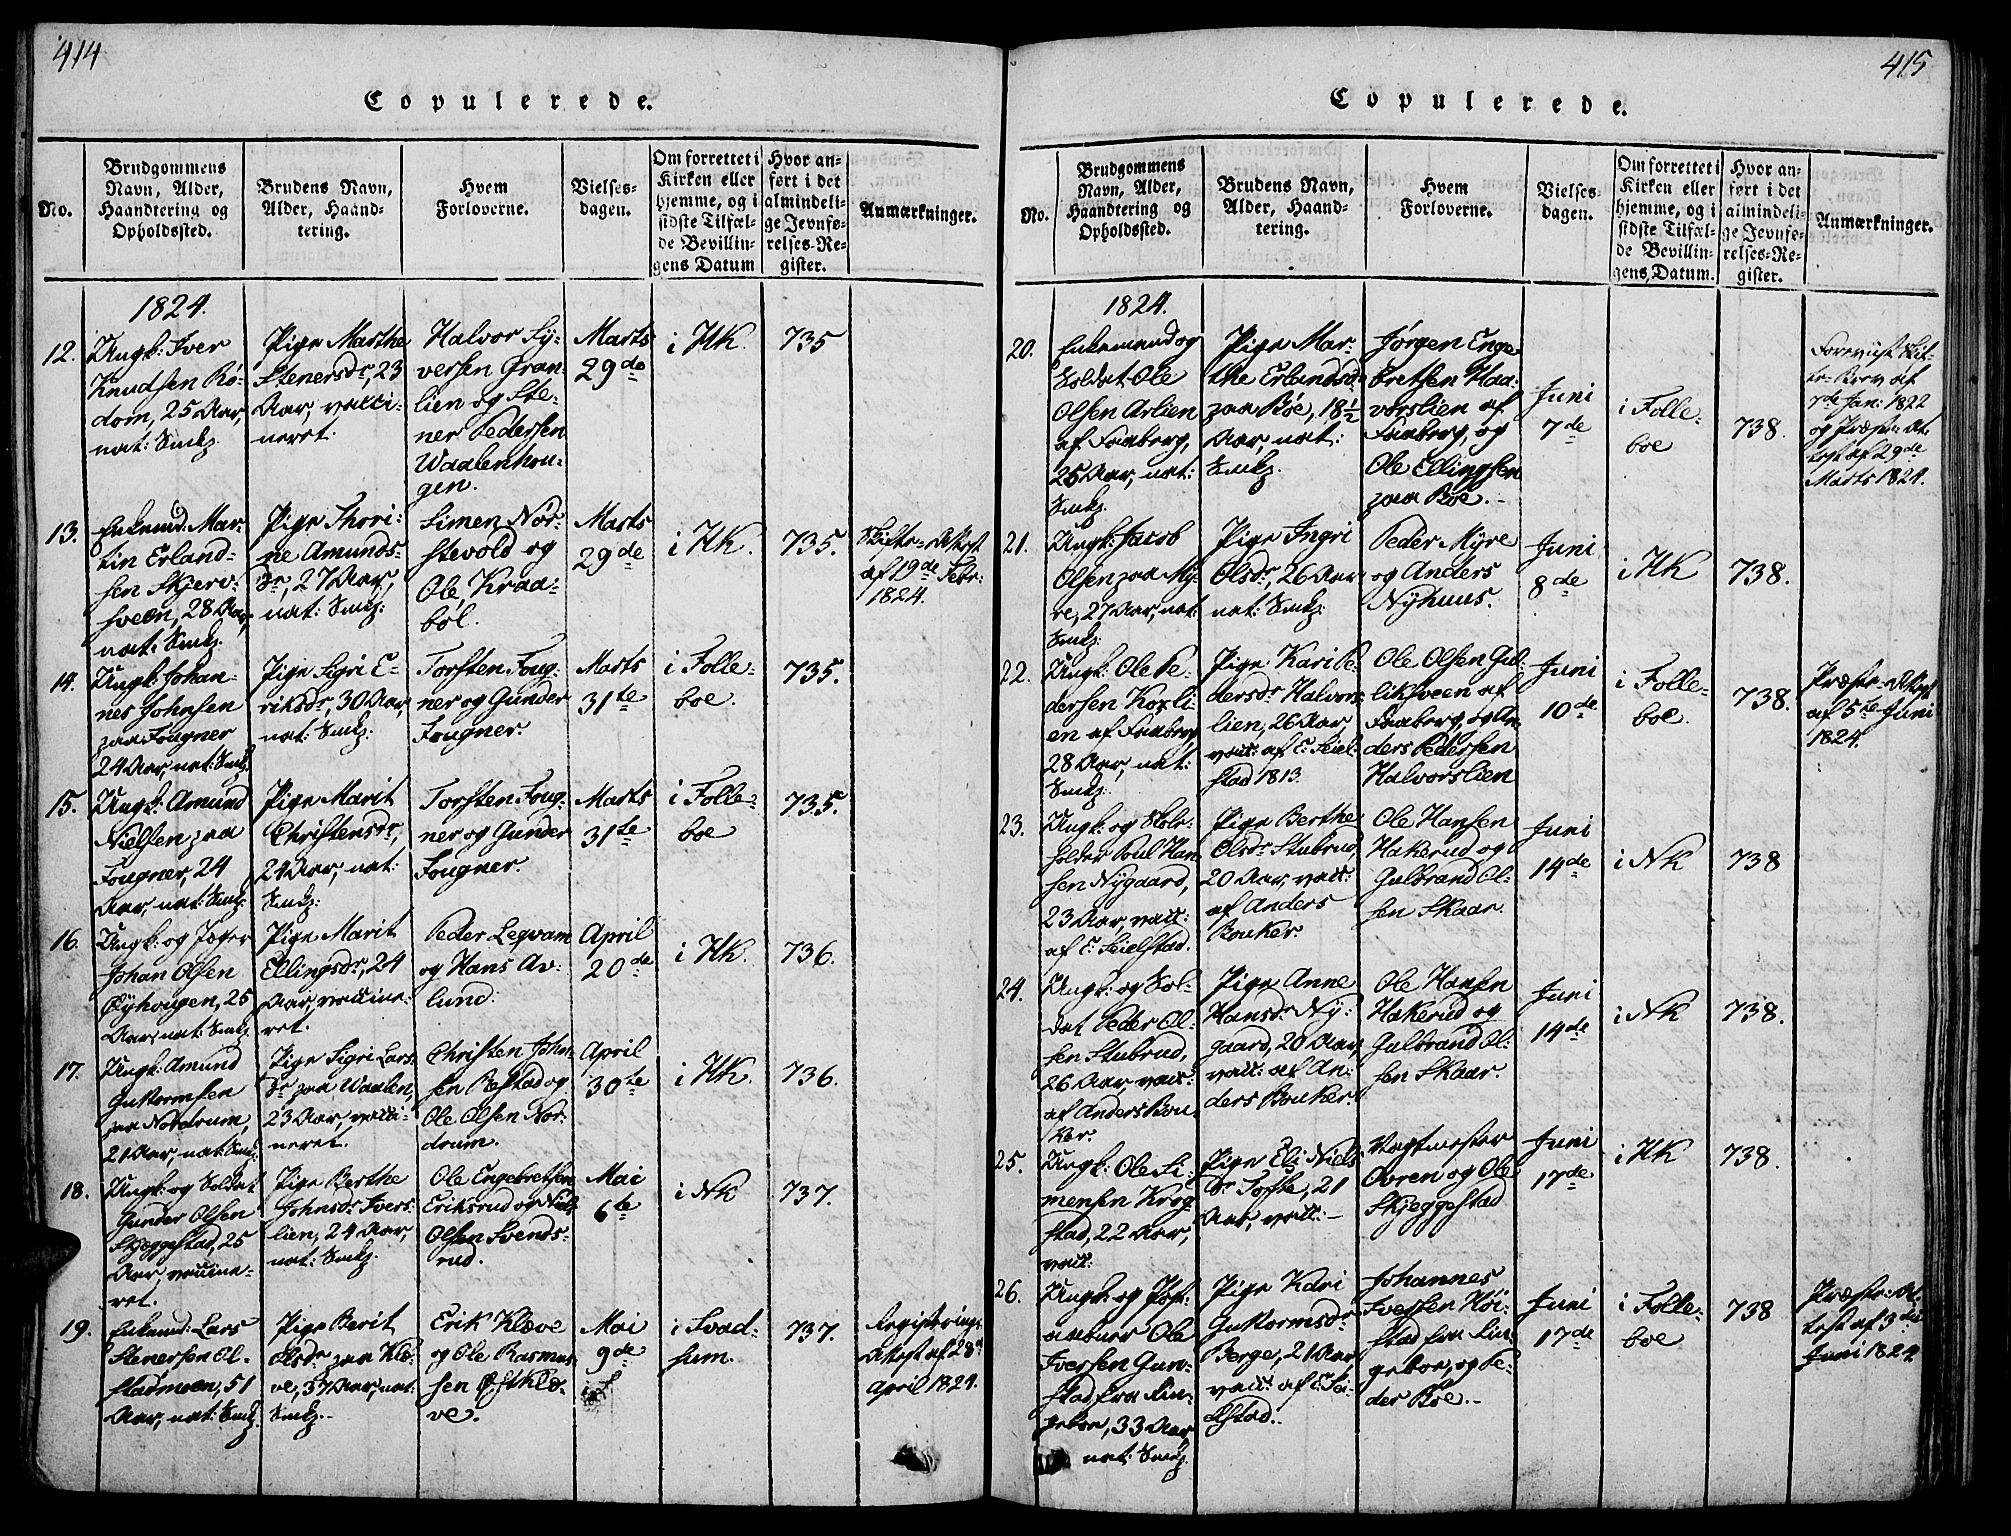 414
Copulerede.
No.
Brudgommens
Navn, Alder,
Haandtering og
Opholdssted.
Brudens Navn,
Alder, Haand-
tering.
Hvem
Forloverne.
Vielses-
dagen.
Om forrettet i
Kirken eller
hjemme, og i
sidste Tilfæl-
de Bevillin-
gens Datum
Hvor an-
ført i det
almindeli-
ge Jevnfø-
relses-Re-
gister.
Anmærkninger.
1824.
12.
Ungk: Iver
Knudsen Rø-
dom, 25 Aar,
nat: Smkp.
Pige Marthe
Stenersdr, 23
Aar, vacci-
neret.
Halvor Sy-
versen Gran-
lien og Ste-
ner Pedersen
Waalenhou-
gen.
Marts
29de
i HK.
735
13.
Enkemd: Mar-
tin Erland-
sen Skjerv-
sveen, 28 Aar,
nat: Smkp.
Pige Thori-
ne Amunds-
dr, 27 Aar,
nat: Smkp:
Simen Nør-
stevold og
Ole Kraa-
bøl.
Marts
29de
i HK.
735.
Skifte-Attest
af 19de Febr:
1824.
14.
Ungk: Johan-
nes Johnsen
paa Fougner
24 Aar, nat: Smkp.
Pige Sigri E-
riksdr, 30 Aar,
nat: Smkp:
Torsten Foug-
ner og Gunder
Fougner.
Marts
31te
i Folle-
boe.
735.
15.
Ungk: Amund
Nielsen paa
Fougner, 24
Aar, nat: Smkp.
Pige Marit
Christensdr,
24 Aar, nat:
Smkp:
Torsten Foug-
ner og Gunder
Fougner.
Marts
31te
i Folle-
boe
735.
16.
Ungk: og Jæger
Johan Olsen
Øyhougen, 25
Aar, nat: Smkp
Pige Marit
Ellingsdr, 24
Aar, vaccine-
ret.
Peder Legvam
og Hans Av-
lund.
April
20de
i HK.
736.
17.
Ungk: Amund
Guttormsen
paa Nordrum,
21 Aar, nat: Smk:
Pige Sigri Lars
dr paa Waalen,
23 Aar, vacci-
neret.
Christen John
sen Bøstad og
Ole Olsen Nor-
drum.
April
30te
i HK.
736.
18.
Ungk: og Soldat
Gunder Olsen
Skjeggestad, 25
Aar, vaccine-
ret.
Pige Berthe
Johnsdr Ivers-
lien, 24 Aar,
nat: Smkp.
Ole Engebretsen
Eriksrud og Niels
Olsen Svends-
rud.
Mai
6te
i NK
737.
19.
Enkemd: Lars
Stenersen Ol-
stadmoen, 51
Aar, nat: Smkp.
Pige Berit
Olsdr paa Klæ-
ve, 37 Aar, nat:
Smkp.
Erik Klæve
og Ole Rasmus-
sen Østklæ-
ve.
Mai
9de
i Svad-
sum.
737.
Registerings-
Attest af 28de
April 1824.
415
Copulerede.
No.
Brudgommens
Navn, Alder,
Haandtering og
Opholdssted.
Brudens Navn,
Alder, Haand-
tering.
Hvem
Forloverne.
Vielses-
dagen.
Om forrettet i
Kirken eller
hjemme, og i
sidste Tilfæl-
de Bevillin-
gens, Datum.
Hvor an-
ført i det
almindeli-
ge Jevnfø-
relses-Re-
gister.
Anmærkninger.
1824.
20.
Enkemand og
Soldat Ole
Olsen Arlien
af Faaberg,
25 Aar, nat:
Smkp.
Pige Mar-
the Erlandsdr
paa Bøe, 18½
Aar, nat:
Smkp.
Jørgen Enge-
bretsen Haa-
vorslien af
Faaberg, og
Ole Ellingsen
paa Bøe.
Juni
7de
i Folle-
boe
738.
Foreviist Skif-
te-Brev af
7de Jan: 1822
og Præste-At-
test af 29de
Marts 1824.
21.
Ungk: Jacob
Olsen paa My-
re, 27 Aar, nat
Smkp:
Pige Ingri
Olsdr, 26 Aar
nat: Smkp:
Peder Myre
og Anders
Nyhuus.
Juni
8de
i HK
738.
22.
Ungk: Ole Pe-
dersen Koxli-
en af Faaberg
28 Aar, nat:
Smkp:
Pige Kari Pe-
dersdr Halvors-
lien, 26 Aar
vacc: af E: Seiel-
stad 1813.
Ole Olsen Gul-
liksveen af
Faaberg, og An-
ders Pedersen
Halvorslien
Juni
10de
i Folle-
boe.
738.
Præste-Attest
af 5te Juni
1824.
23.
Ungk: og Skole-
holder Poul Han-
sen Nygaard,
23 Aar, vacc:
af E: Seielstad.
Pige Berthe
Olsdr Stubrud,
20 Aar, vacc:
af Anders
Bonker.
Ole Hansen
Hakerud og
Gulbrand Ol-
sen Skaar.
Juni
14de
i NK
738
24.
Ungk: og Sol-
dat Peder Ol-
sen Stubrud,
26 Aar, vacc:
af Anders Bon-
ker.
Pige Anne
Hansdr Ny-
gaard, 20 Aar,
vacc: af An-
ders Bonker.
Ole Hansen
Hakerud og
Gulbrand Ol-
sen Skaar.
Juni
14de
i NK
738.
25.
Ungk: Ole Si-
mensen Krog-
stad, 22 Aar,
vacc:
Pige Eli Niels
dr Tofte, 21
Aar, vacc:
Vagtmester
Ovren og Ole
Skjeggestad
Juni
17de
i HK
738.
26.
Ungk: og
Ole
Iversen Gun-
stad fra Rin-
geboe, 33 Aar
nat: Smkp.
Pige Kari
Guttormsdr
Berge, 21 Aar
vacc: af E: Sei-
elstad.
Johannes
Iversen Høi-
stad fra Rin-
geboe, og Pe-
der Bøe.
Juni
17de
i Folle-
boe
738
Præste-At-
test af 3die
Juni 1824